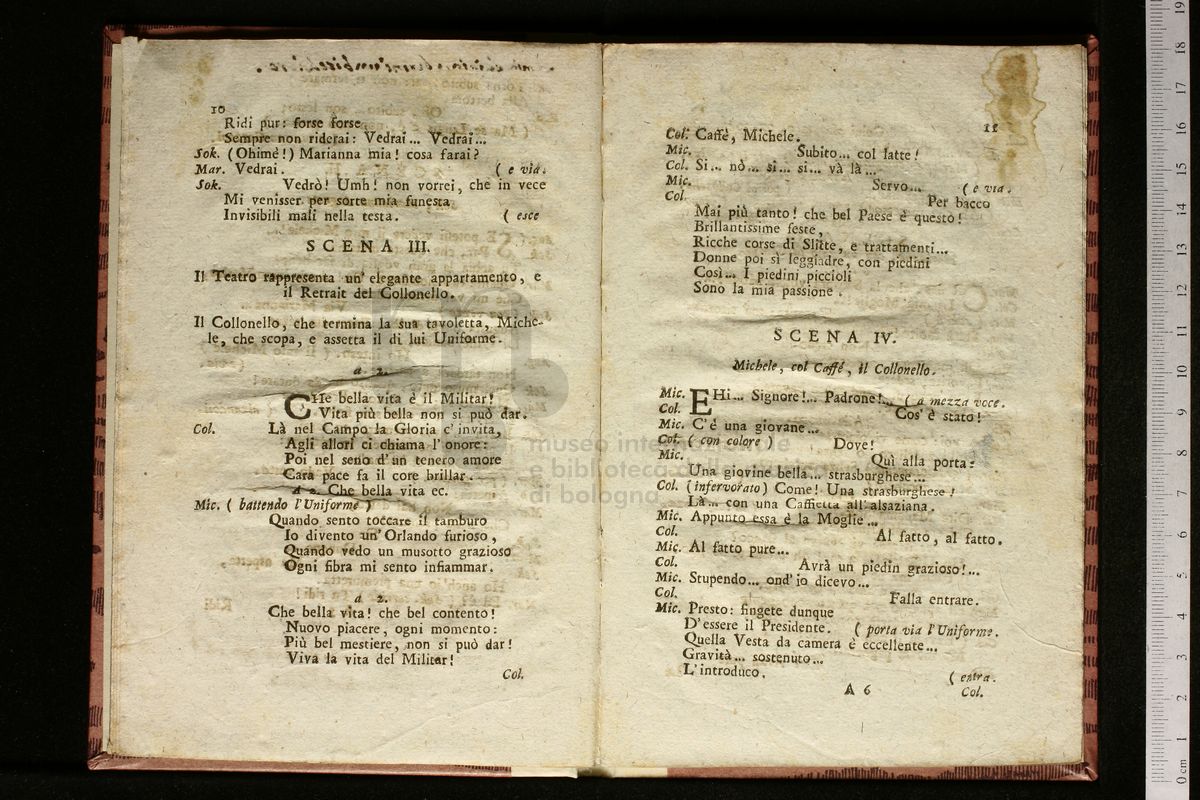 10
Ridi pur: forse forse
Sempre non riderai: Vedrai... Vedrai...
Sok. (Ohimè!) Marianna mia! cosa farai?
Mar. Vedrai. ( e via.
Sok. Vedrò! Umh! non vorrei, che in vece
Mi venisser per sorte mia funesta
Invisibili mali nella testa. ( esce
SCENA III.
Il Teatro rappresenta un' elegante appartamento, e
il Retrait del Collonello.
Il Collonello, che termina la sua tavoletta, Miche-
le, che scopa, e assetta il di lui Uniforme.
a 2.
CHe bella vita è il Militar!
Vita più bella non si può dar.
Col. Là nel Campo la Gloria c' invita,
Agli allori ci chiama l'onore:
Poi nel seno d'un tenero amore
Cara pace fa il core brillar.
a 2. Che bella vita ec.
Mic. ( battendo l'Uniforme )
Quando sento toccare il tamburo
Io divento un' Orlando furioso,
Quando vedo un musotto grazioso
Ogni fibra mi sento infiammar.
a 2.
Che bella vita! che bel contento!
Nuovo piacere, ogni momento:
Più bel mestiere, non si può dar!
Viva la vita del Militar!
Col.
11
Col. Caffè, Michele.
Mic. Subito... col latte!
Col. Si... nò... si... si... và là...
Mic. Servo... ( e via.
Col. Per bacco
Mai più tanto! che bel Paese è questo!
Brillantissime feste,
Ricche corse di Slitte, e trattamenti...
Donne poi sì leggiadre, con piedini
Così... I piedini piccioli
Sono la mia passione.
SCENA IV.
Michele, col Caffé, il Collonello.
Mic. EHi... Signore!... Padrone!... ( a mezza voce.
Col. Cos' è stato!
Mic. C'é una giovane...
Col. ( con calore ) Dove!
Mic. Quì alla porta:
Una giovine bella... strasburghese...
Col. (infervorato) Come! Una strasburghese!
Là... con una Caffietta all' alsaziana.
Mic. Appunto essa è la Moglie...
Col. Al fatto, al fatto.
Mic. Al fatto pure...
Col. Avrà un piedin grazioso!...
Mic. Stupendo... ond' io dicevo...
Col. Falla entrare.
Mic. Presto: fingete dunque
D'essere il Presidente. ( porta via l'Uniforme.
Quella Vesta da camera è eccellente...
Gravità... sostenuto...
L'introduco. ( entra.
A 6
Col.
museo internazionale
e biblioteca
di bologna